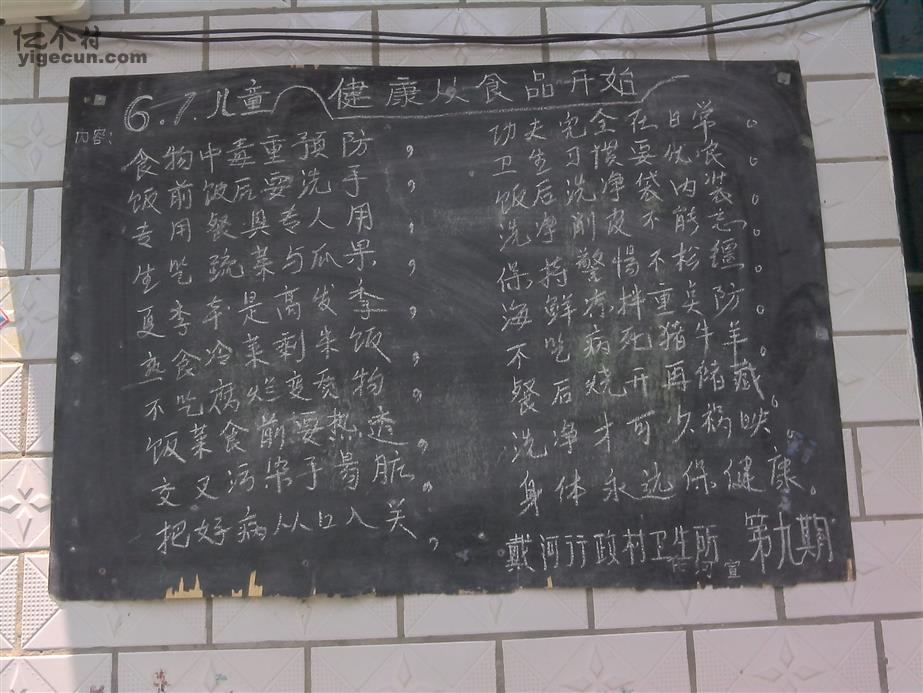 亿个村
yigecun.com
6.1.儿童 健康从食品开始
内容:
食物中毒重预防， 功夫完全在日常。
饭前饭后要洗手， 卫生习惯要优良。
专用餐具专人用， 饭后洗净袋内装。
生吃蔬菜与瓜果， 洗净削皮不能忘。
夏季本是高发季， 保持警惕不松疆。
食冷菜剩饭， 海鲜拌重点防。
不吃腐烂变质物， 不吃病死猪牛羊。
饭菜食前要热透， 餐后烧开再储藏。
交叉污染手易脏， 洗净才可少祸映。
把好病从口入关。 身体永远保健康。
戴河行政村卫生所 第九期
宣